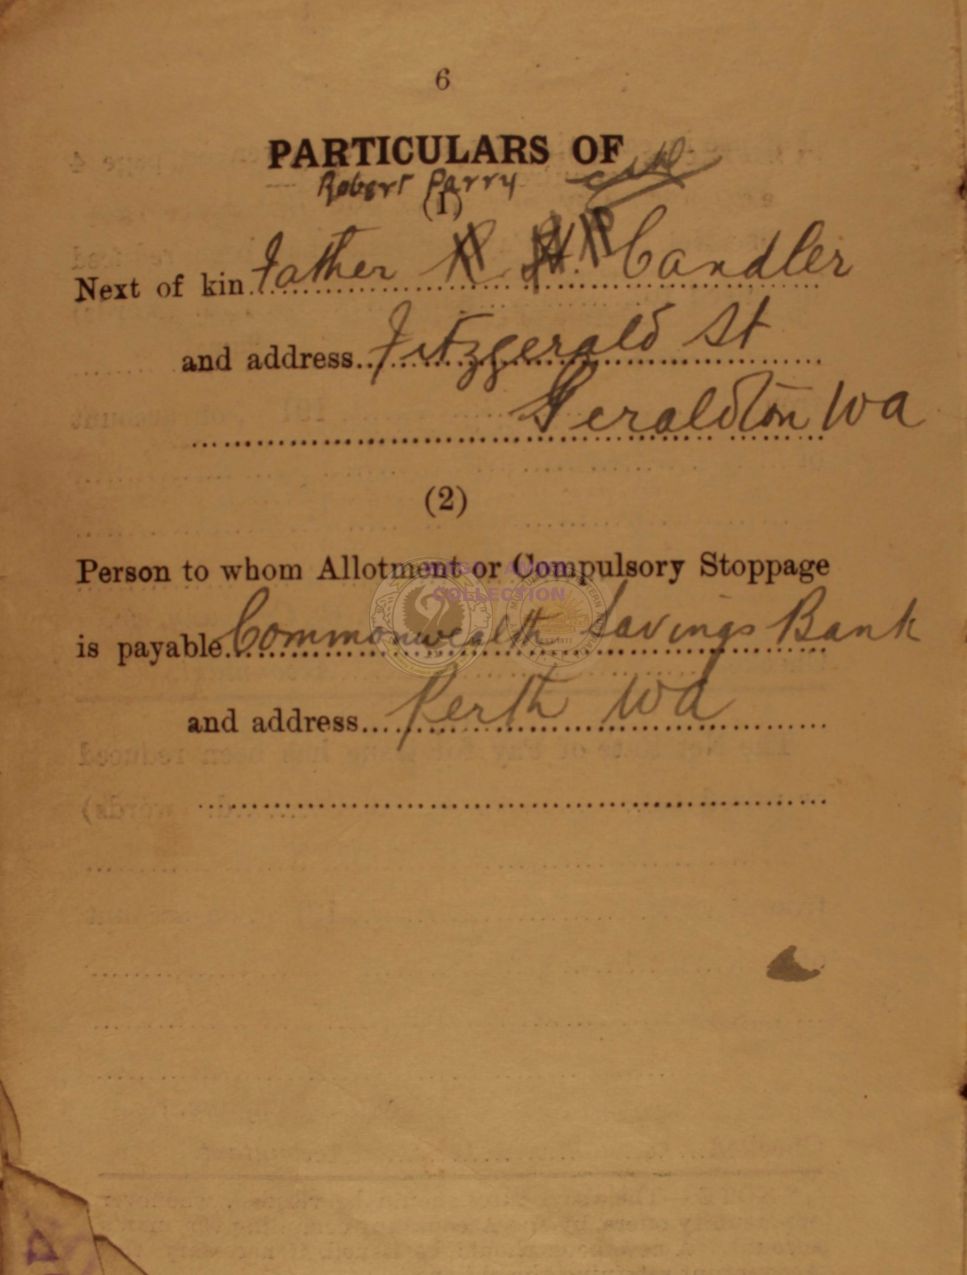 6
PARTICULARS OF
Robert Parry
(1)
Next of kin Father R H R Candler
and address Fitzgerald St
Geraldton Wa
(2)
Person to whom Allotment or Compulsory Stoppage
COLLECTION
is payable Commonwealth Savings Bank
and address Perth Wa